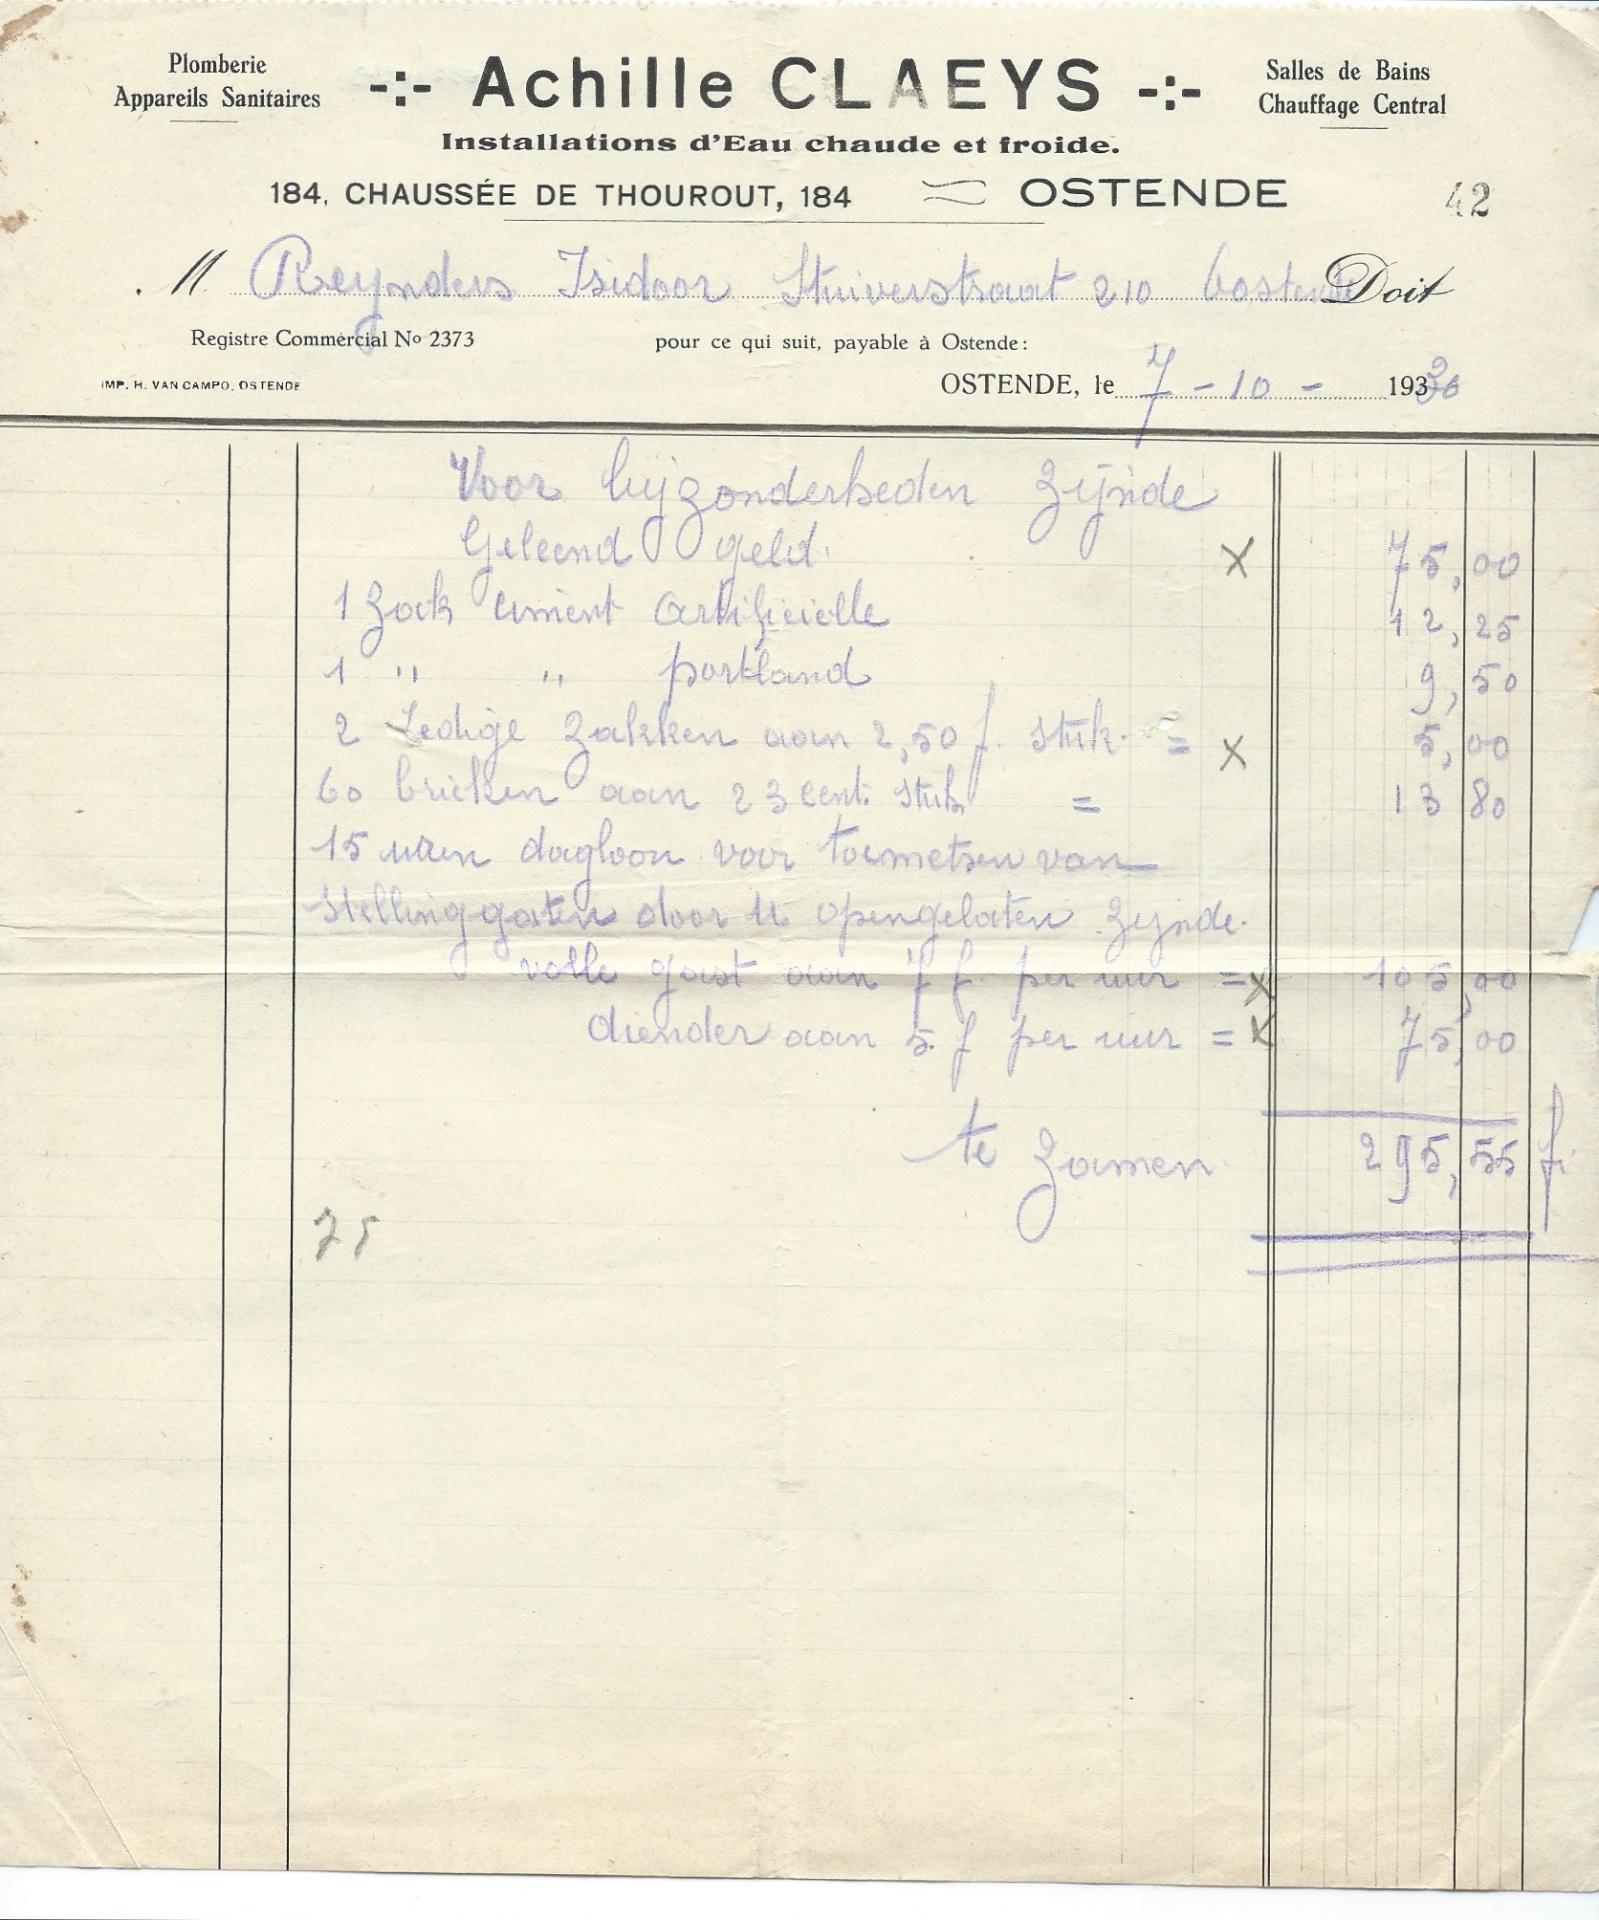 Plomberie
Appareils Sanitaires
-:- Achille CLAEYS -:-
Salles de Bains
Chauffage Central
Installations d'Eau chaude et froide.
184, CHAUSSÉE DE THOUROUT, 184 OSTENDE
42
M Reynders Isidoor Stuiverstraat 210 Oostende Doit
Registre Commercial No 2373 pour ce qui suit, payable à Ostende:
IMP. H. VAN CAMPO, OSTENDE
OSTENDE, le 7 - 10 - 193
Voor bijzonderheden zijnde
Geleend geld. X 75,00
1 Zack ciment Artificielle 12,25
1 " " portland 9,50
2 Ledige Zakken aan 2,50 f. stuk. = X 5,00
60 bricken aan 23 cent. stuk = 13 80
15 uren dagloon voor toemetsen van
stellinggaten door U opengelaten zynde.
volle gast aan 7 f. per uur = X 105,00
diender aan 5. f per uur = X 75,00
te zamen 295,55 f.
75